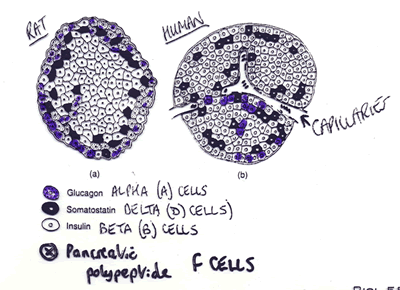 RAT
HUMAN
CAPILLARIES
(a)
(b)
Glucagon ALPHA (A) CELLS
Somatostatin DELTA (D) CELLS)
Insulin BETA (B) CELLS
Pancreatic
polypeptide F CELLS